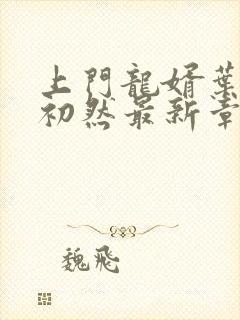 上門龍婿葉
初然最新章
魏飛